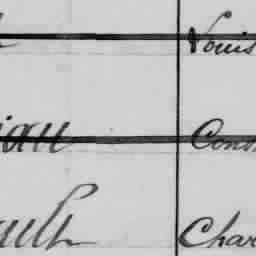 Louis
iau Cons
ault Char